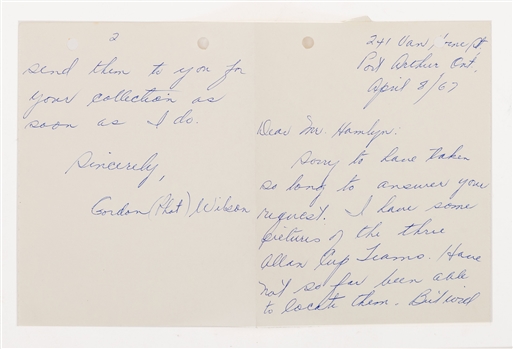 241 Van
Port Arthur Ont.
April 8/67
Dear Mr. Hamlyn:
Sorry to have taken
so long to answer your
request. I have some
pictures of the three
Allan Cup Teams. Have
not so far been able
to locate them. But will
2
send them to you for
your collection as
soon as I do.
Sincerely,
Gordon (Phat) Wilson